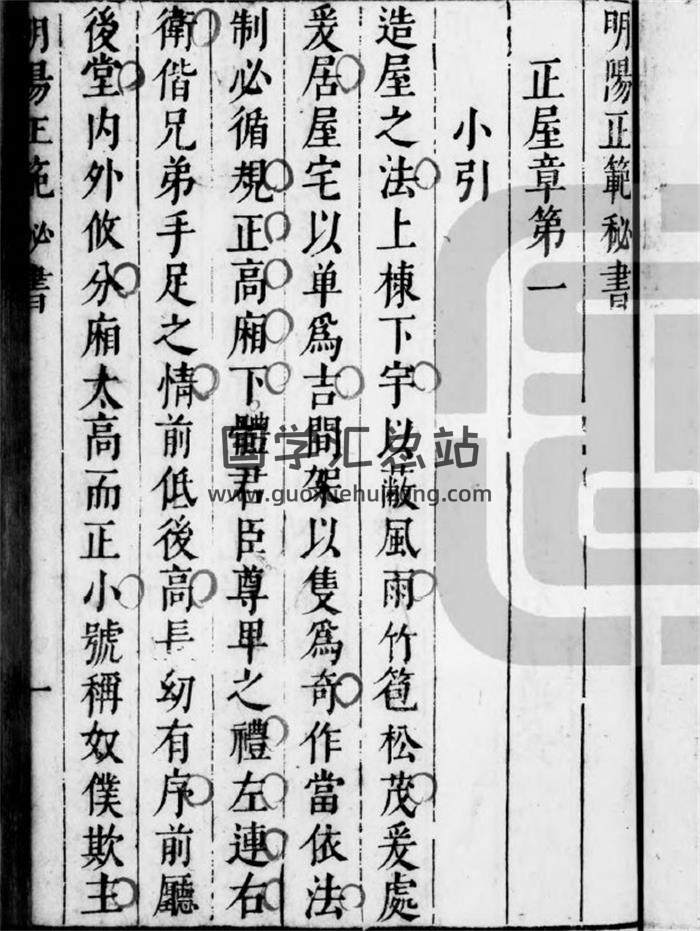 明陽正範秘書
正屋章第一
小引
造屋之法上棟下宇以蔽風雨竹苞松茂爰處
爰居屋宅以单爲吉間架以隻爲奇作當依法
制必循規正高廂下體君臣尊卑之禮左連右
衛偕兄弟手足之情前低後高長幼有序前廳
後堂内外攸分廂太高而正小號稱奴僕欺主
明陽正範秘書
一
国学汇总站
www.guoxuehuizong.com